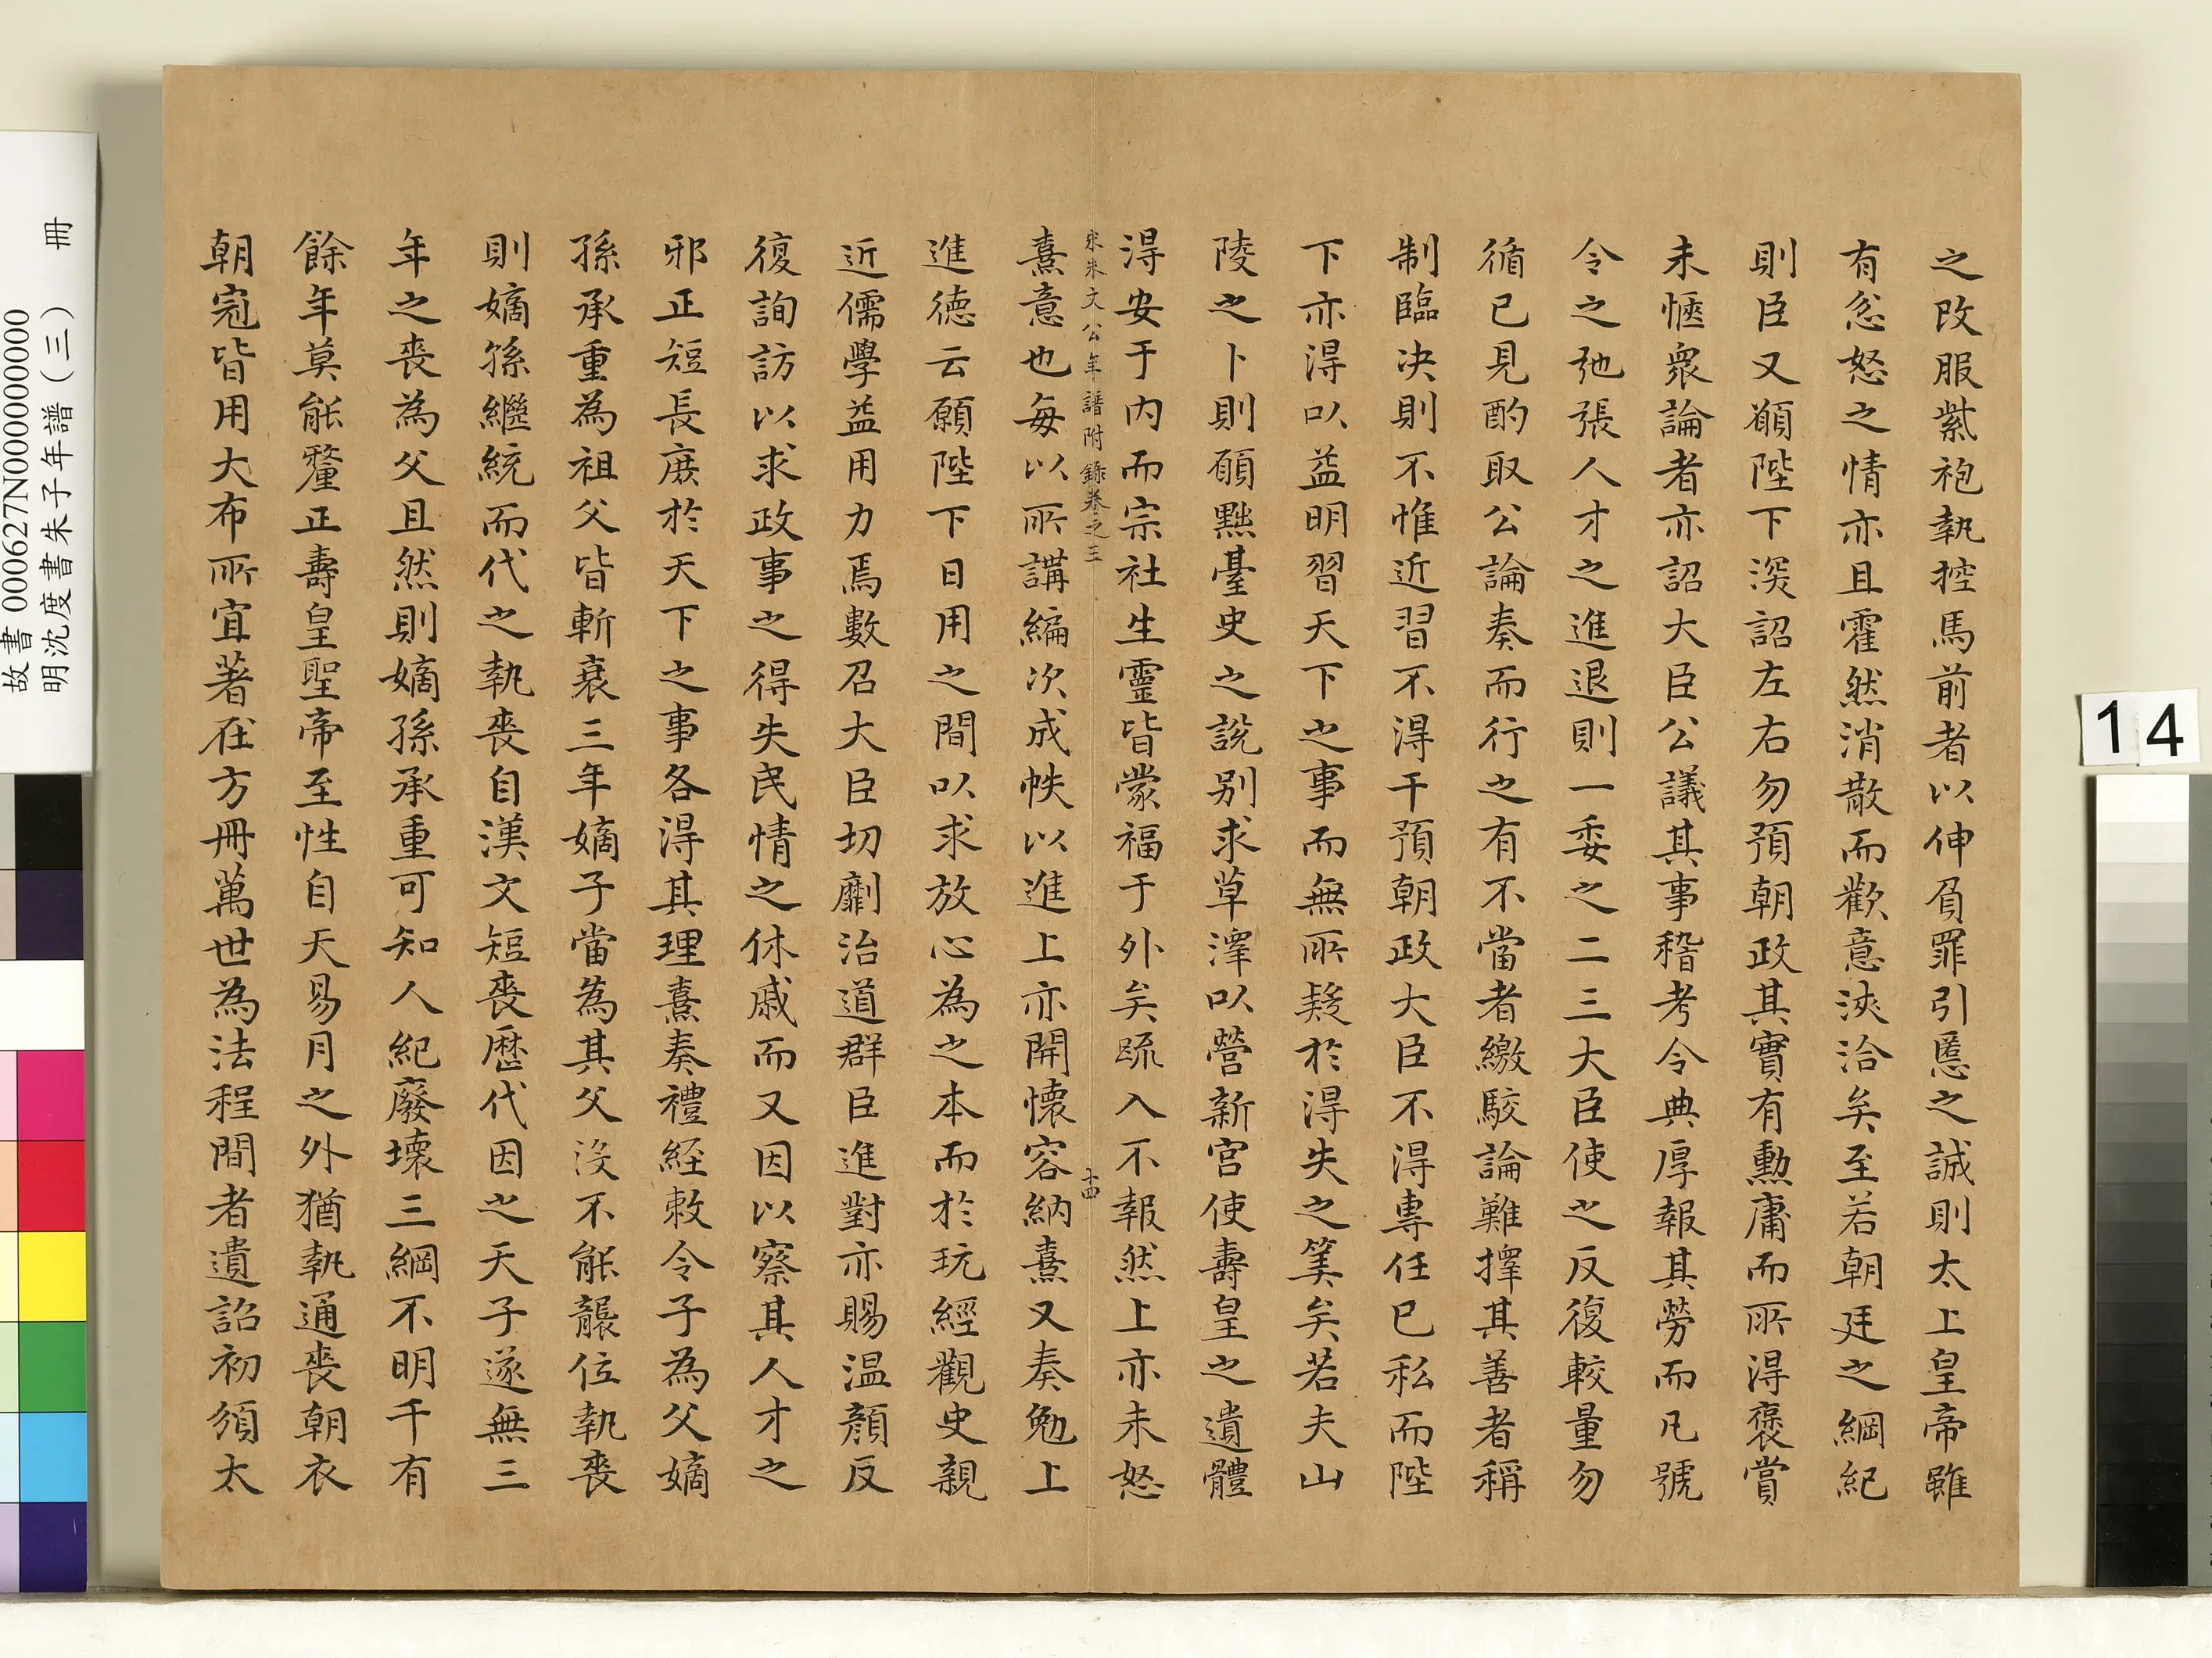 之改服紫袍執控馬前者以伸負罪引慝之誠則太上皇帝雖
有忿怒之情亦且霍然消散而歡意浹洽矣至若朝廷之綱紀
則臣又願陛下深詔左右勿預朝政其實有勳庸而所得褒賞
未愜衆論者亦詔大臣公議其事稽考令典厚報其勞而凡號
令之弛張人才之進退則一委之二三大臣使之反復較量勿
循已見酌取公論奏而行之有不當者繳駮論難擇其善者稱
制臨决則不惟近習不得干預朝政大臣不得專任已私而陛
下亦得以益明習天下之事而無所疑於得失之筭矣若夫山
陵之卜則願黜臺史之說别求草澤以營新宮使壽皇之遺體
得安于内而宗社生靈皆蒙福于外矣疏入不報然上亦未怒
宋朱文公年譜附錄卷之三 十四
熹意也每以所講編次成帙以進上亦開懷容納熹又奏勉上
進德云願陛下日用之間以求放心為之本而於玩經觀史親
近儒學益用力焉數召大臣切劘治道群臣進對亦賜温顔反
復詢訪以求政事之得失民情之休戚而又因以察其人才之
邪正短長庶於天下之事各得其理熹奏禮経敕令子為父嫡
孫承重為祖父皆斬衰三年嫡子當為其父没不能襲位執喪
則嫡孫繼統而代之執喪自漢文短喪歷代因之天子遂無三
年之喪為父且然則嫡孫承重可知人紀廢壞三綱不明千有
餘年莫能釐正壽皇聖帝至性自天易月之外猶執通喪朝衣
朝冠皆用大布所宜著在方冊萬世為法程間者遺詔初頒太
故書 000627N000000000
明沈度書朱子年譜（三） 冊
14